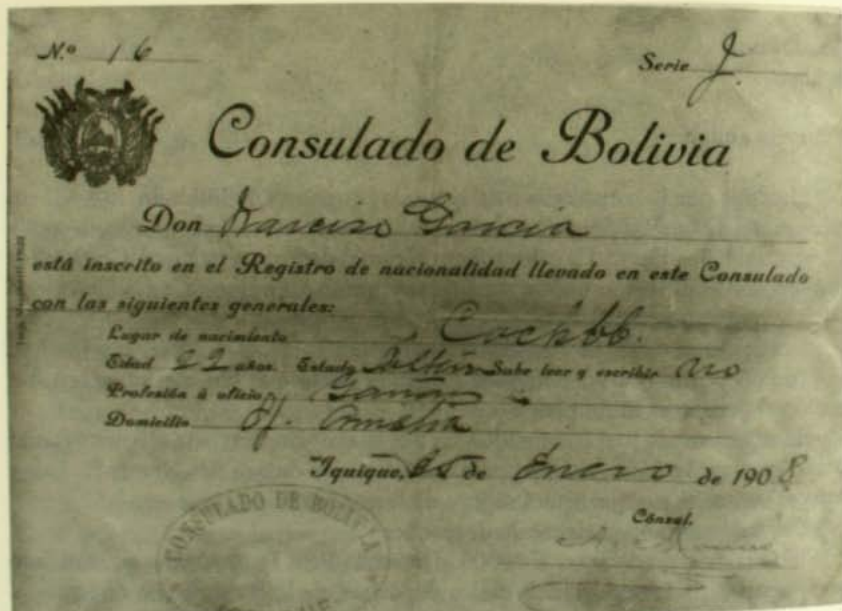 Nº 16
Serie J.
Consulado de Bolivia
Don Narciso Garcia
está inscrito en el Registro de nacionalidad llevado en este Consulado
con las siguientes generales:
Lugar de nacimiento Cochbb.
Edad 22 años. Estado Solteró Sabe leer y escribir no
Profesión ú oficio Gañan
Domicilio Of. Amelia
Iquique, de Enero de 1908
Cónsul.
CONSULADO DE BOLIVIA